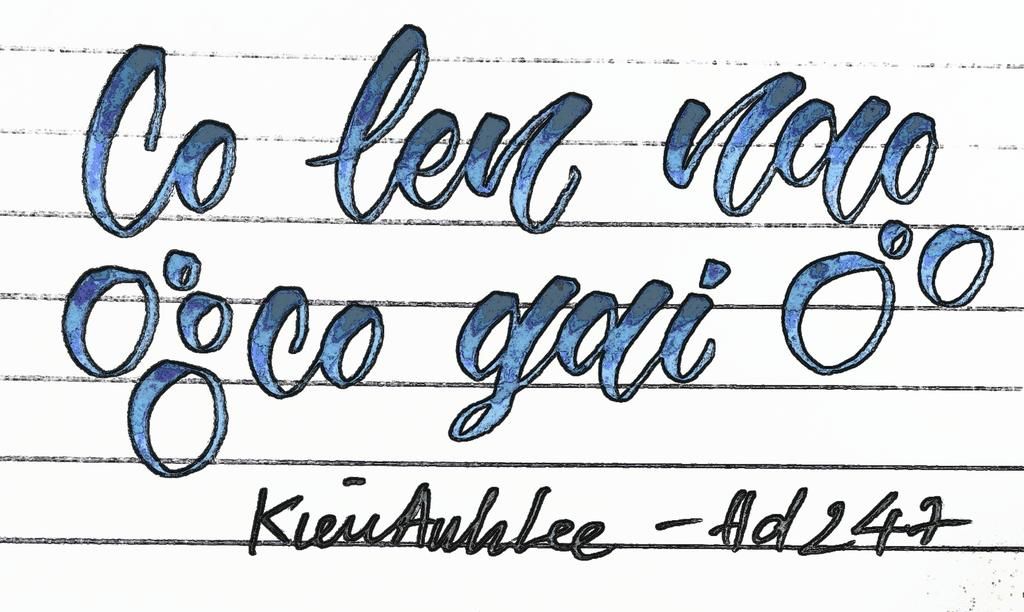 Co len nao
co gai
KienAnhLee - Ad247